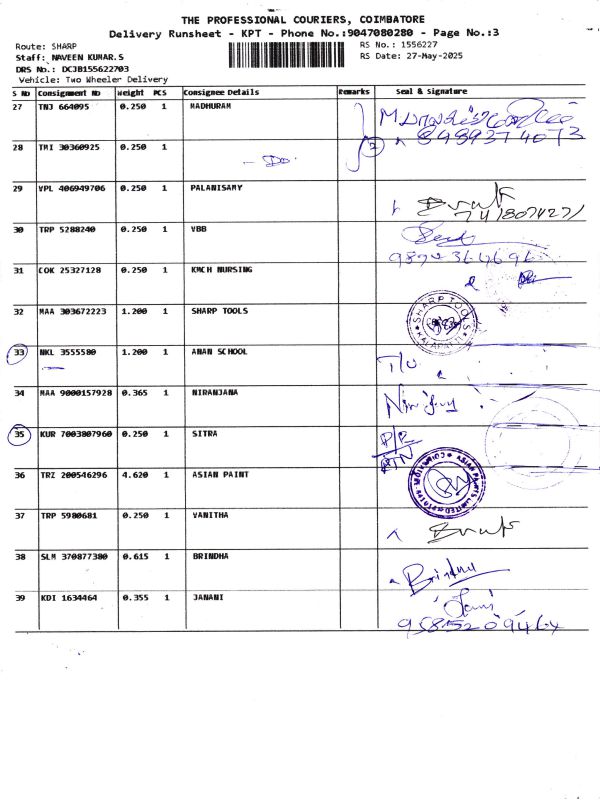 THE PROFESSIONAL COURIERS, COIMBATORE
Delivery Runsheet - KPT - Phone No.:9047080280 - Page No.:3
Route: SHARP
RS No.: 1556227
Staff: NAVEEN KUMAR.S
RS Date: 27-May-2025
DRS No.: DCJB155622703
Vehicle: Two Wheeler Delivery
S No Consignment No Weight PCS Consignee Details Remarks Seal & Signature
27 TNJ 664095 0.250 1 MADHURAM
8489374073
28 TMI 30360925 0.250 1 - Do - 2
29 VPL 406949706 0.250 1 PALANISAMY
7418074271
30 TRP 5288240 0.250 1 VBB
31 COK 25327128 0.250 1 KMCH NURSING
32 MAA 303672223 1.200 1 SHARP TOOLS SHARP TOOLS KALAPATTI
33 NKL 3555580 1.200 1 ANAN SCHOOL
34 MAA 9000157928 0.365 1 NIRANJANA
35 KUR 7003807960 0.250 1 SITRA
36 TRZ 200546296 4.620 1 ASIAN PAINT
37 TRP 5980681 0.250 1 VANITHA
38 SLM 370877380 0.615 1 BRINDHA Brindha
39 KDI 1634464 0.355 1 JANANI
9585209464